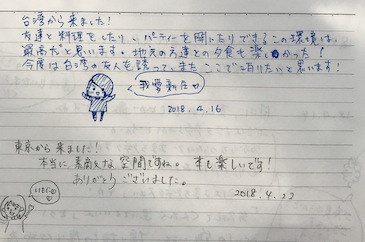 台湾から来ました!
友達と料理をしたり、パーティーを開いたりできるこの環境は、
最高だと思います。地元の方達との夕食も楽しかった!
今度は台湾の友人を誘って、また、ここで泊りたいと思います!
我愛新庄
2018.4.16
東京から来ました!
本当に素敵な空間ですね。本も楽しいです!
ありがとうございました。
2018.4.23